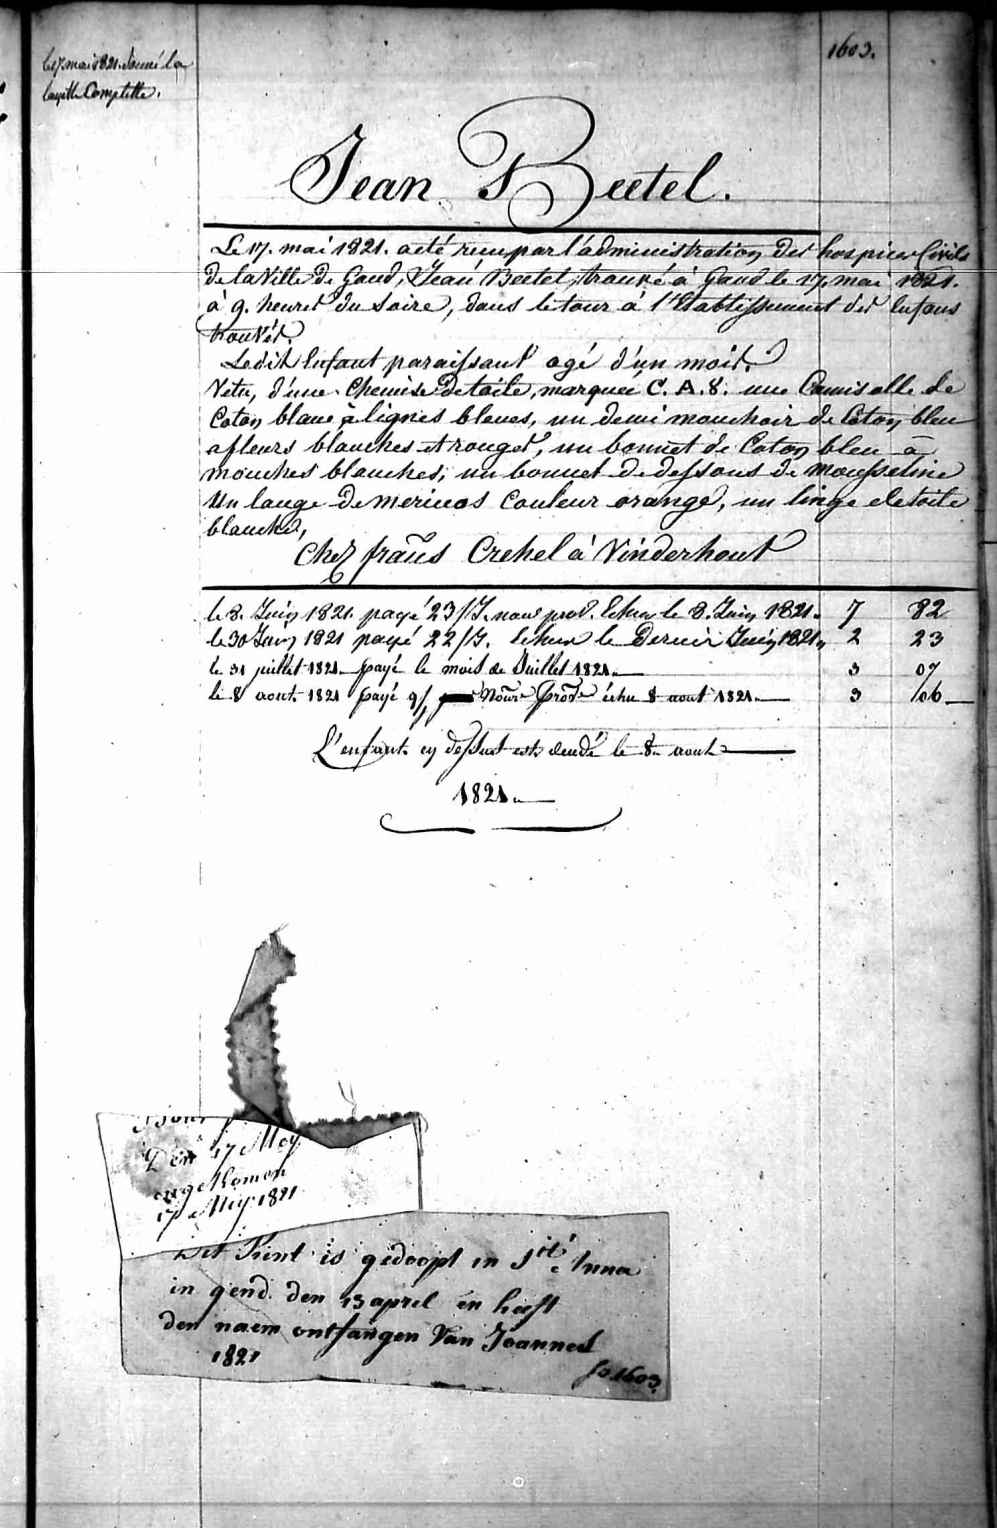 le 17. mai 1821. donné la
layette Complette.
1603.
Jean Beetel.
Le 17. mai 1821. a été reçu par l'administration des hospices Civils
de la Ville de Gand, Jean Beetel, trouvé à Gand le 17. mai 1821.
à 9. heures du Soire, dans le tour à l'Etablissement des Enfans
trouvés.
Ledit Enfant paraissant agé d'un mois.
Vetu, d'une Chemise de toile, marquee C. A. 8. une Camisolle de
Coton blanc à lignes bleues, un demi mouchoir de Coton bleu
a fleurs blanches et rouges, un bonnet de Coton bleu à
mouches blanches, un bonnet de dessous de mousseline
un lange de merinos Couleur orange, un linge de toile
blanche,
Chez frañs Crehel à Vinderhout
le 8. Juin 1821. payé 23/J. nour prod. Echu le 8. Juin 1821. 7 82
le 30 Juin 1821 payé 22/J. Echu le Dernier Juin 1821. 2 23
le 31 juillet 1821 payé le mois de Juillet 1821. 3 07
le 8 aout 1821 payé 9/ Nour prod échu 8 aout 1821. 3 06
L'enfant cy dessus est décédé le 8 aout
1821.
Den 17 Mey
angekomen
17 Mey 1821
Dit Kint is gedoopt in Ste Anna
in gend. den 13 april en heeft
den naem ontfangen Van Joannes
1821
fo 1603